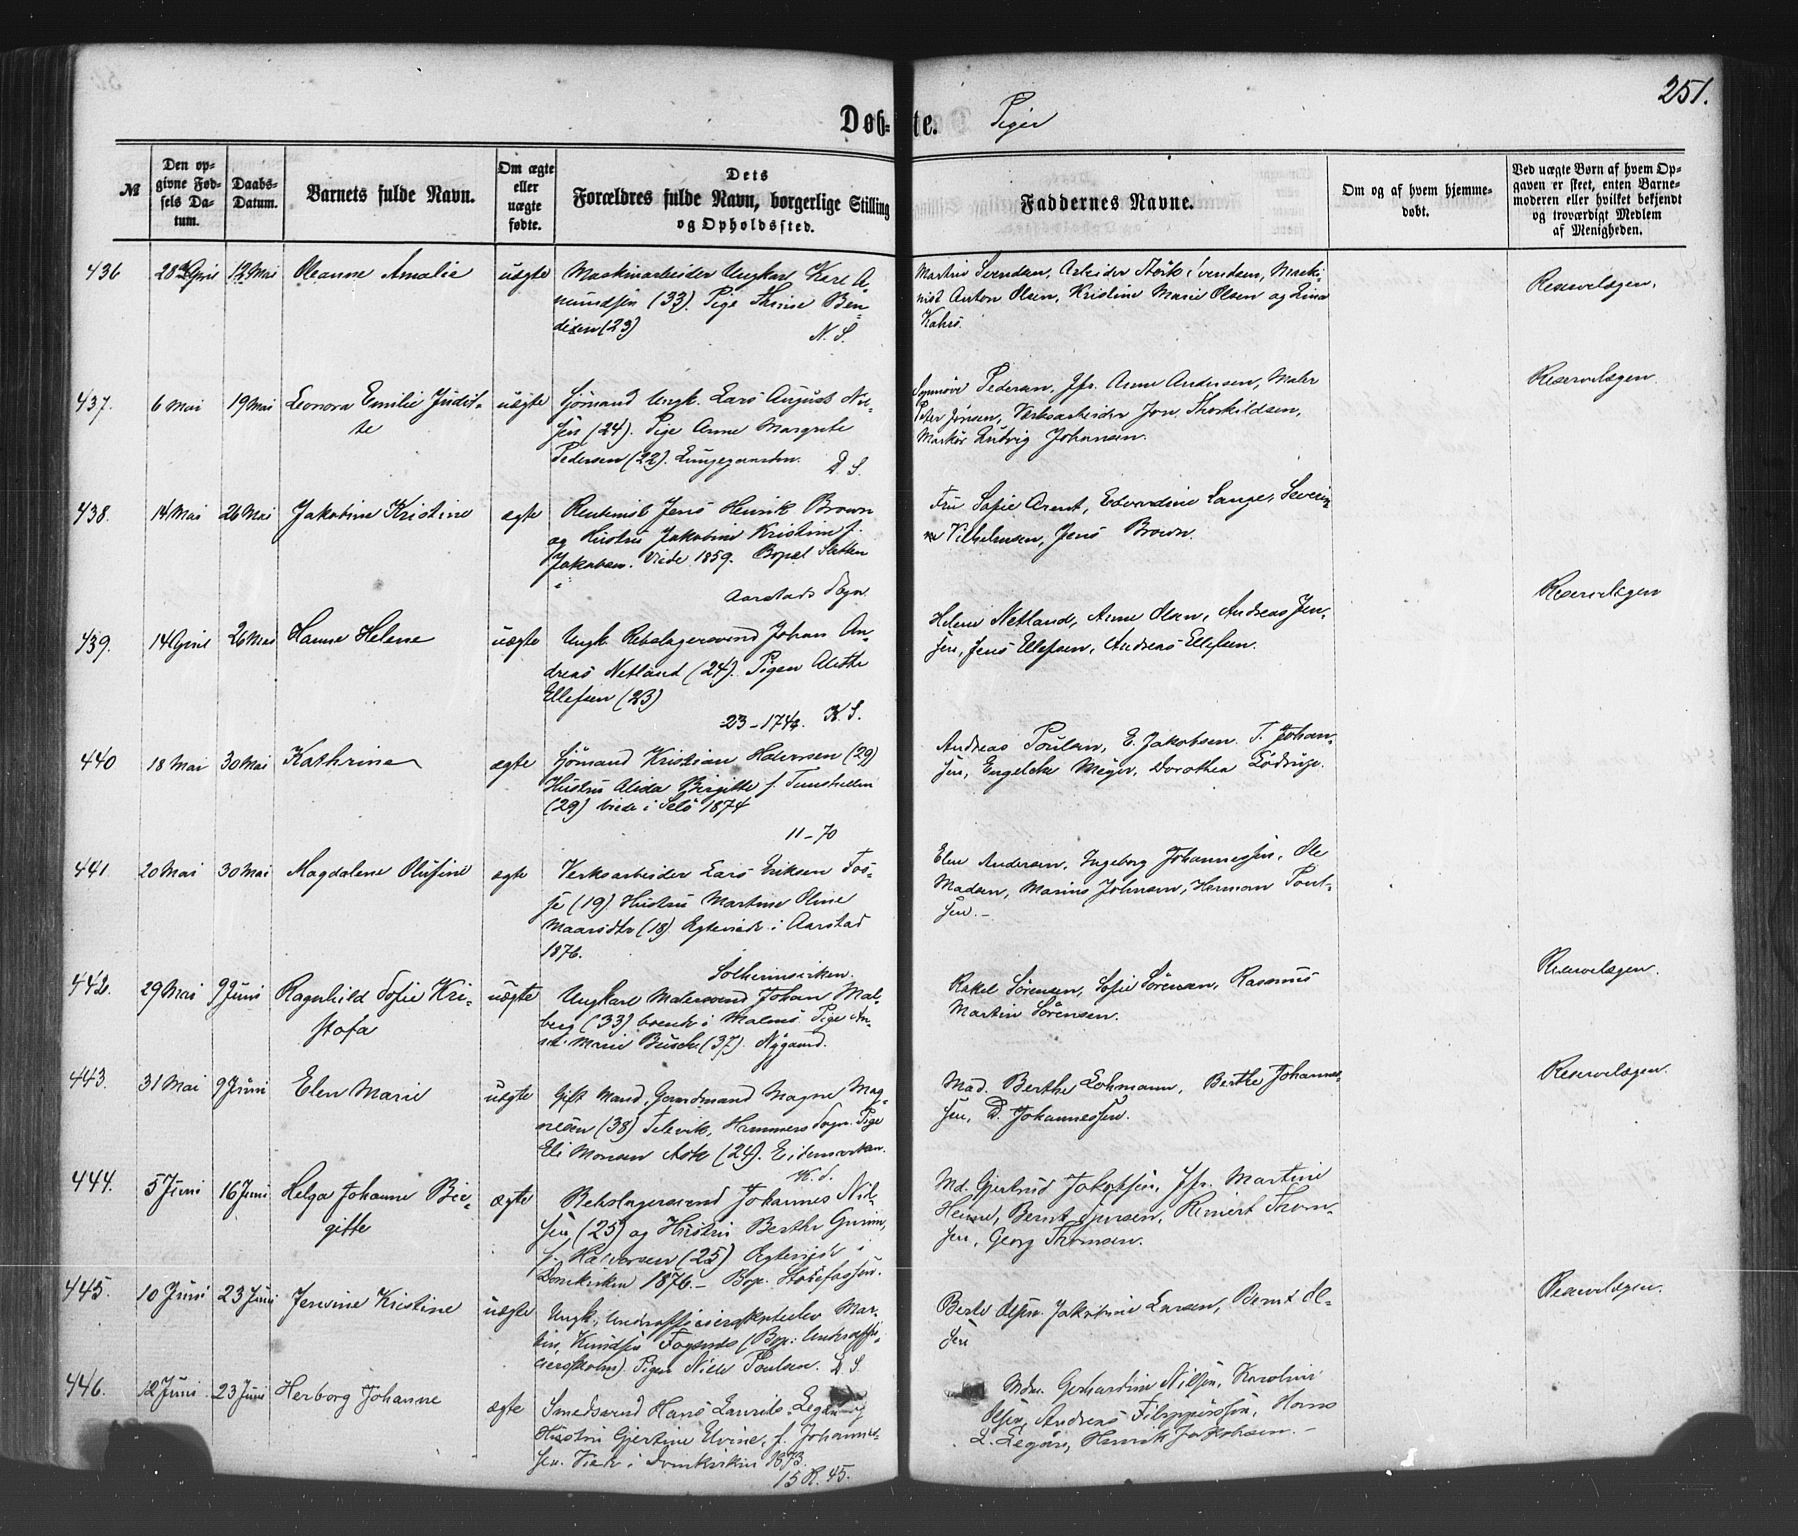 251.
Døb- te. Piger
№
Den op-
givne Fød-
sels Da-
tum.
Daabs-
Datum.
Barnets fulde Navn.
Om ægte
eller
uægte
fødte.
Dets
Forældres fulde Navn, borgerlige Stilling
og Opholdssted.
Faddernes Navne.
Om og af hvem hjemme-
døbt.
Ved uægte Børn af hvem Op-
gaven er skeet, enten Barne-
moderen eller hvilket bekjendt
og troværdigt Medlem
af Menigheden.
436 28 April 12 Mai Oleanne Amalie uægte Maskinarbeider Ungkarl Karl A-
mundsen (33). Pige Thrine Ben-
dixen (23)
N. S.
Martin Svendsen, Arbeider Størk Svendsen, Maski-
nist Anton Olsen, Kristine Marie Olsen og Lina
Kahrs.
Reservelægen.
437. 6 Mai 19 Mai Leonora Emilie Judit-
te
uægte Sjømand Ungk. Lars August Nil-
sen (24). Pige Anne Margrete
Pedersen (22). Lungegaarden. D. S.
Synnøve Pedersen, Jfr. Anne Andersen, Maler
Peter Jensen, Værksarbeider Jon Thorkildsen,
Markør Ludvig Johansen.
Reservelægen
438. 14 Mai 26 Mai Jakobine Kristine ægte Rentenist Jens Henrik Brown
og Hustru Jakobine Kristine f.
Jakobsen. Viede 1859. Bopæl Sletten
i Aarstads Sogn.
Fru Sofie Arent, Edvardine Lange, Severi-
ne Vilhelmsen, Jens Brown.
439. 14 April 26 Mai Hanne Helene uægte Ungk. Rebslagersvend Johan An-
dreas Netland (24). Pigen Alethe
Ellefsen (23)
23-174. K. S.
Helene Netland, Anne Olsen, Andreas Jen-
sen, Jens Ellefsen, Andreas Ellefsen.
Reservelægen
440 18 Mai 30 Mai Kathrine ægte Sjømand Kristian Halversen (29)
Hustru Alida Birgitte f.
(29) viede i Selø 1874
11-70
Andreas Poulsen, E. Jakobsen. T. Johan-
sen, Engelche Meyer, Dorothea Lødrup.
441. 20 Mai 30 Mai Magdalene Olufine ægte Verksarbeider Lars Eriksen Fos-
se (19). Hustru Martine Oline
Maarsdtr (18). Ægteviede i Aarstad
1876.
Solheimsviken.
Elen Andersen, Ingeborg Johannessen, Ole
Madsen, Marius Johnsen, Herman Pont-
sen.-
442. 29 Mai 9 Juni Ragnhild Sofie Kri-
stofa
uægte Ungkarl Malersvend Johan Mal-
berg (33) boende i Malmø. Pige An-
ne Marie Busch (37). Nygaard.
Rakel Sørensen, Sofie Sørensen, Rasmus
Martin Sørensen.
Reservelægen.
443. 31 Mai 9 Juni Elen Marie uægte Gift Mand, Gaardmand Magne Mag-
nesen (38) Televik, Hammers Sogn. Pige
Eli Monsen Ask (24). Eidemarken.
K. S.
Mad. Berthe Lohmann, Berthe Johannes-
sen, D. Johannessen.
Reservelægen.
444. 5 Juni 16 Juni Helga Johanne Bir-
gitte
ægte Rebslagersvend Johannes Nil-
sen (25) og Hustru Berthe Gurine
f. Halversen (25) Ægteviede i
Domkirken 1876.- Bop.
Md. Gjertrud Jakobsen, Jfr. Martine
Heine, Bernt Iversen, Reinert Thom-
sen, Georg Thomsen.
445. 10 Juni 23 Juni Jenvine Kristine uægte Ungk. Underofficierskolelev Mar-
tin Knudsen Fosnæs (Bop: Underoffi-
ciersskolen). Pigen Nille Poulsen. D. S.
Berte Olsen, Jakobine Larsen, Bernt Ol-
sen
Reservelægen.
446. 12 Juni 23 Juni Herborg Johanne ægte Smedsvend Hans Laurits Legøn og
Hustru Gjertine Elvine, f. Johannes-
sen. Viede i Domkirken 1873.
15 R. 45.
Mdm. Gerhardine Nilsen, Karoline
Olsen, Andreas Filippussen, Hans
L. Legøn, Henrik Jakobsen.-